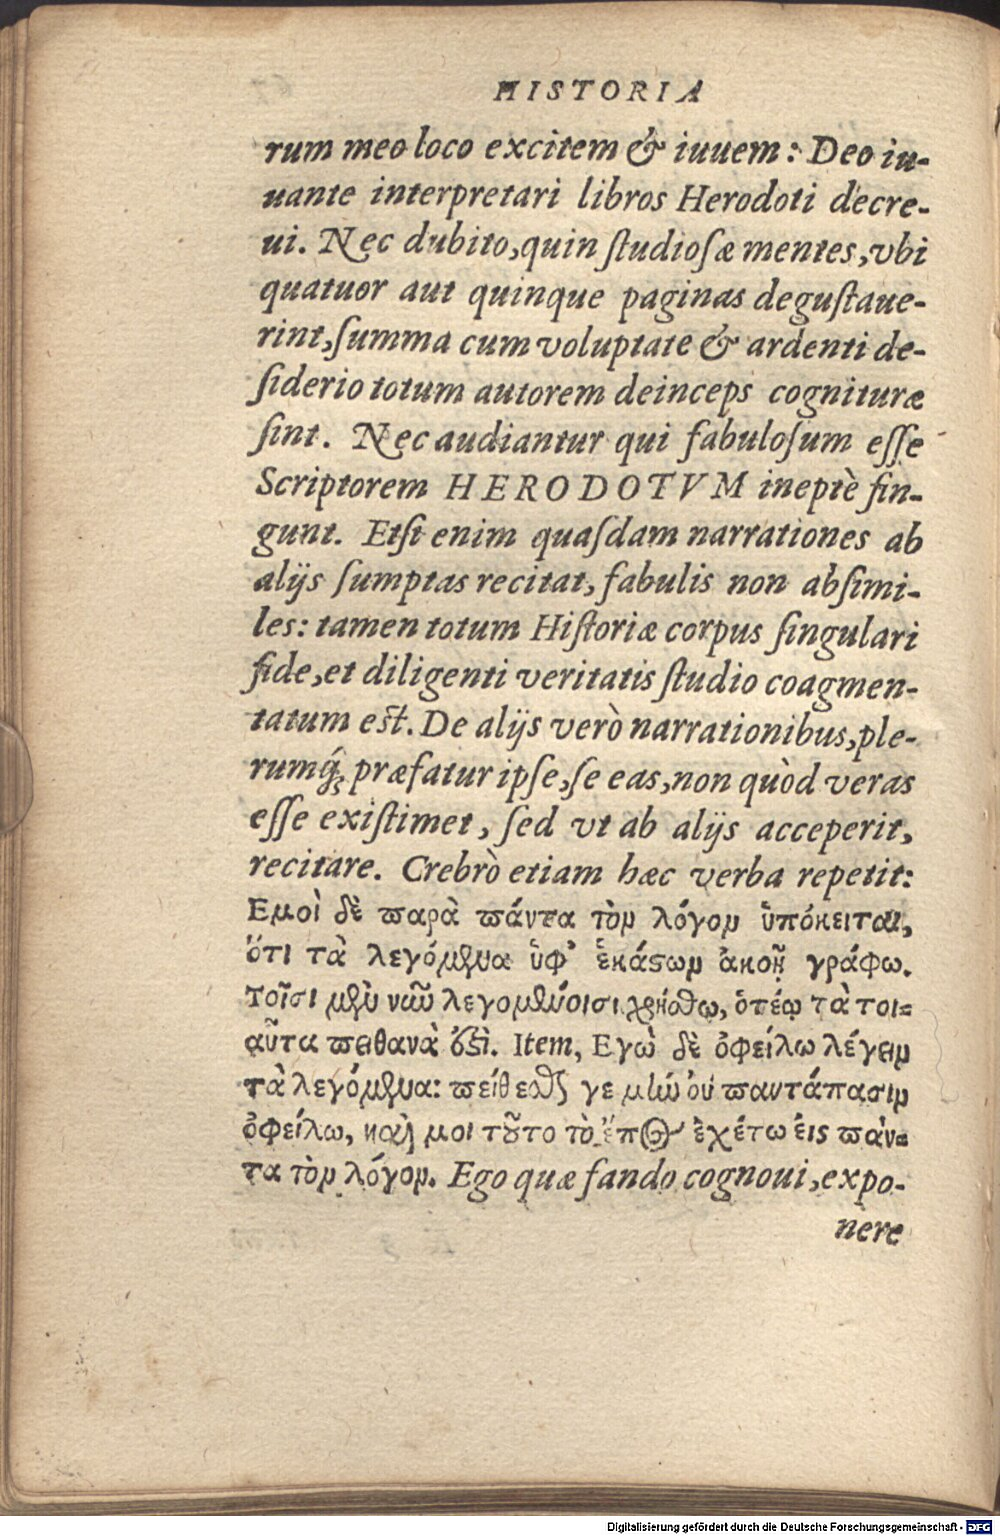 HISTORIA
rum meo loco excitem & iuuem: Deo iu-
uante interpretari libros Herodoti decre-
ui. Nec dubito, quin ſtudioſæ mentes, vbi
quatuor aut quinque paginas deguſtaue-
rint, ſumma cum voluptate & ardenti de-
ſiderio totum autorem deinceps cognituræ
ſint. Nec audiantur qui fabuloſum eſſe
Scriptorem HERODOTVM ineptè fin-
gunt. Etſi enim quaſdam narrationes ab
alijs ſumptas recitat, fabulis non abſimi-
les: tamen totum Hiſtoriæ corpus ſingulari
fide, et diligenti veritatis ſtudio coagmen-
tatum eſt. De alijs verò narrationibus, ple-
rumq́; præfatur ipſe, ſe eas, non quòd veras
eſſe exiſtimet, ſed vt ab alijs acceperit,
recitare. Crebrò etiam hæc verba repetit:
Εμοὶ δὲ ϖαρὰ ϖάντα τὸν λόγον ὑπόκειται,
ὅτι τὰ λεγόμενα ὑφ' ἑκάϛων ἀκοῇ γράφω.
Τοῖσι μὲν νῦν λεγομένοισι χρήσθω, ὁτέῳ τὰ τοι=
αῦτα ϖειθανὰ ἐϛὶ. Item, Εγὼ δὲ ὀφείλω λέγειν
τὰ λεγόμενα: ϖείθεσθαί γε μὴν οὐ ϖαντάπασιν
ὀφείλω, καὶ μοι τοῦτο τὸ ἔπος ἐχέτω ἐις ϖάν=
τα τὸν λόγον. Ego quæ fando cognoui, expo-
nere
Digitalisierung gefördert durch die Deutsche Forschungsgemeinschaft - DFG